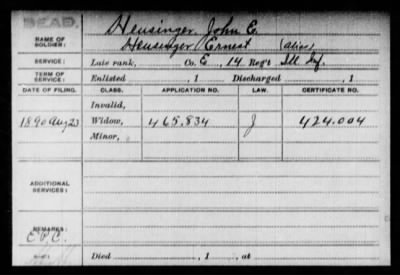 DEAD.
Heusinger, John E.
NAME OF SOLDIER: Heusinger Ernest (alias)
SERVICE: Late rank, Co. E, 14 Reg't Ill Inf.
TERM OF SERVICE: Enlisted , 1 Discharged , 1
DATE OF FILING. CLASS. APPLICATION NO. LAW. CERTIFICATE NO.
Invalid,
1890 Aug 23 Widow, 465.834 J 424.004
Minor,
ADDITIONAL SERVICES:
REMARKS:
C.P.C.
Died , 1 , at